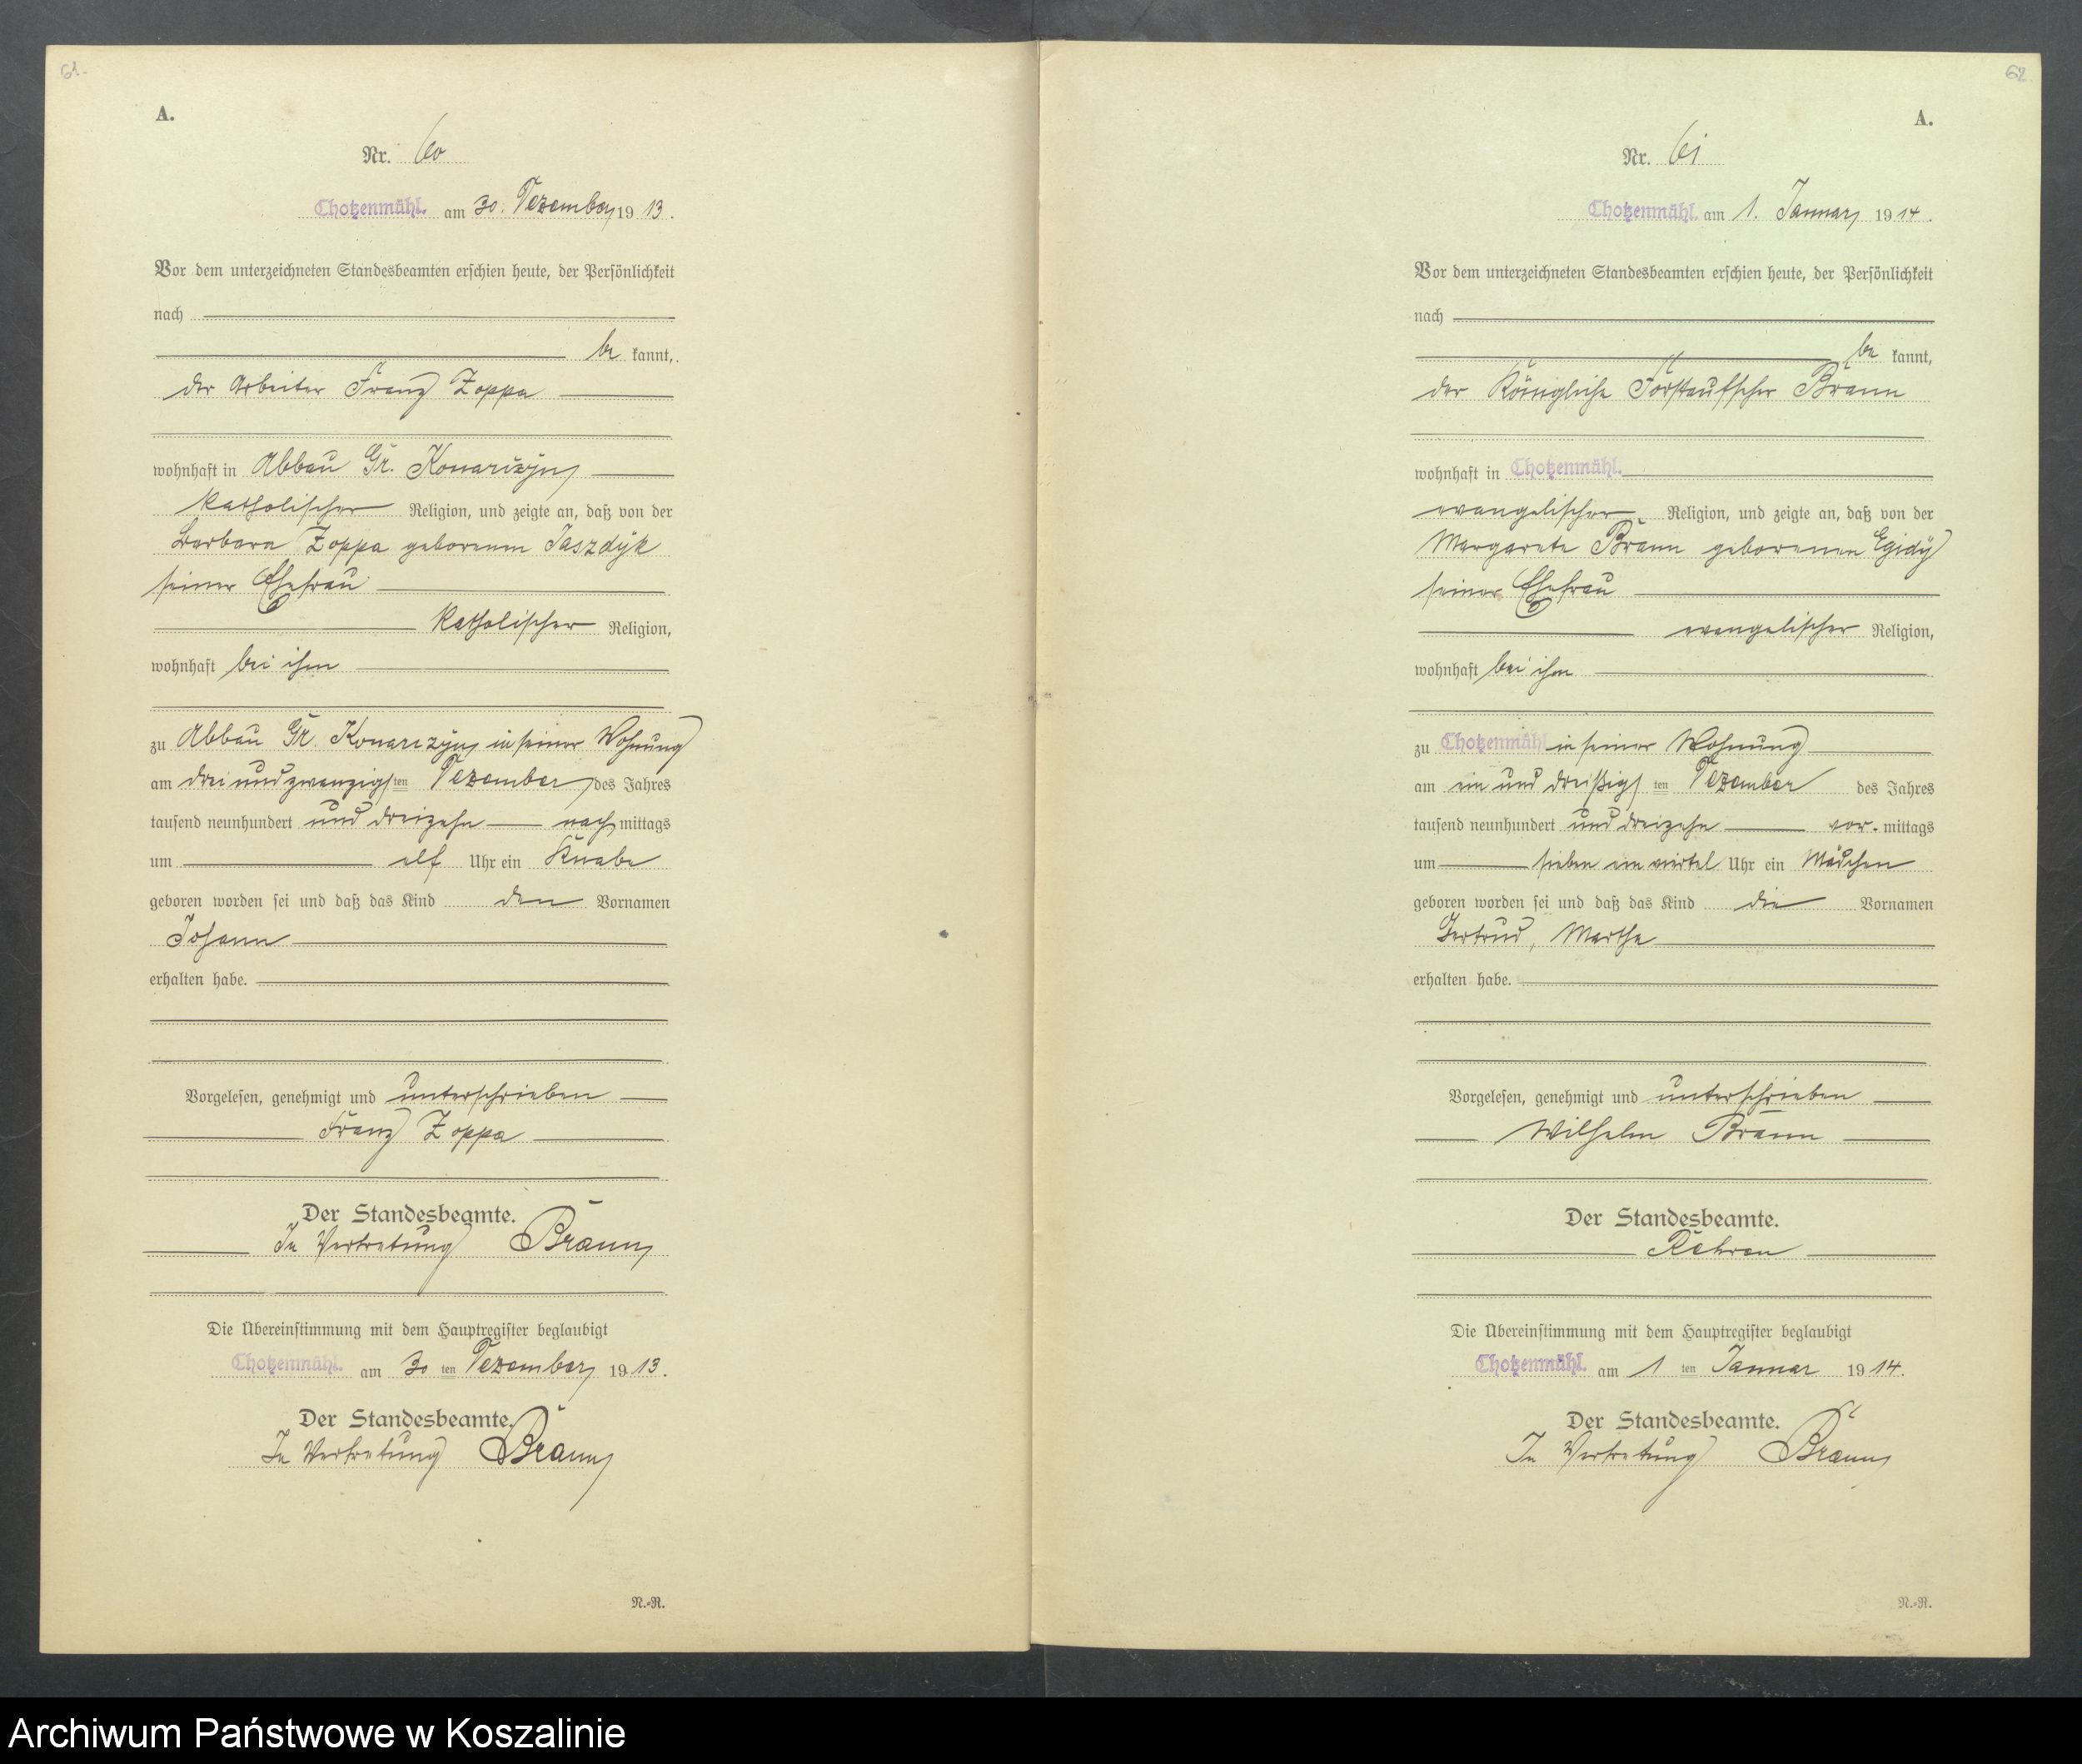 61.
A.
Nr. 60
Chotzenmühl. am 30. Dezember 1913.
Vor dem unterzeichneten Standesbeamten erschien heute, der Persönlichkeit
nach
be kannt,
der Arbeiter Franz Zoppa
wohnhaft in Abbau Gr. Konarczyn
katholischer Religion, und zeigte an, daß von der
Barbara Zoppa geborenen Jaszdyk
seiner Ehefrau
katholischer Religion,
wohnhaft bei ihm
zu Abbau Gr. Konarczyn in seiner Wohnung
am drei und zwanzigsten Dezember des Jahres
tausend neunhundert und dreizehn nachmittags
um elf Uhr ein Knabe
geboren worden sei und daß das Kind den Vornamen
Johann
erhalten habe.
Vorgelesen, genehmigt und unterschrieben
Franz Zoppa
Der Standesbeamte.
In Vertretung Braun
Die Übereinstimmung mit dem Hauptregister beglaubigt
Chotzenmühl. am 30 ten Dezember 1913.
Der Standesbeamte.
In Vertretung Braun
N.-R.
62
A.
Nr. 61
Chotzenmühl. am 1. Januar 1914.
Vor dem unterzeichneten Standesbeamten erschien heute, der Persönlichkeit
nach
be kannt,
der Königliche Forstaufseher Braun
wohnhaft in Chotzenmühl.
evangelischer Religion, und zeigte an, daß von der
Margarete Braun geborenen Egidÿ
seiner Ehefrau
evangelischer Religion,
wohnhaft bei ihm
zu Chotzenmühl in seiner Wohnung
am ein und dreißigsten Dezember des Jahres
tausend neunhundert und dreizehn vor-mittags
um sieben ein viertel Uhr ein Mädchen
geboren worden sei und daß das Kind die Vornamen
Gertrud, Martha
erhalten habe.
Vorgelesen, genehmigt und unterschrieben
Wilhelm Braun
Der Standesbeamte.
Die Übereinstimmung mit dem Hauptregister beglaubigt
Chotzenmühl. am 1 ten Januar 1914.
Der Standesbeamte.
In Vertretung Braun
N.-R.
Archiwum Państwowe w Koszalinie